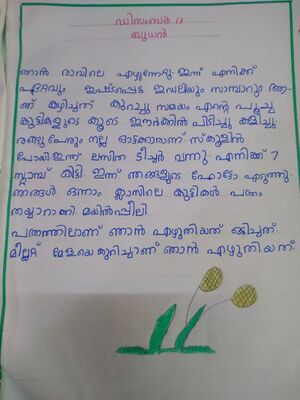 ഡിസംബർ 13
ബുധൻ
ഞാൻ രാവിലെ എഴുന്നേറ്റു. ഇന്ന് എനിക്ക്
ഏറ്റവും ഇഷ്ടപ്പെട്ട ഇഡലിയും സാമ്പാറും ആ
ണ് കഴിച്ചത്. കുറച്ചു സമയം എന്റെ പൂച്ച
കുട്ടികളുടെ കൂടെ ഈർക്കിൽ പിടിച്ചു കളിച്ചു
രണ്ടു പേരും നല്ല ഓട്ടക്കാരാണ്. സ്കൂളിൽ
പോയി. ഇന്ന് ലസിത ടീച്ചർ വന്നു. എനിക്ക് 7
സ്റ്റാമ്പ് കിട്ടി. ഇന്ന് ഞങ്ങളുടെ ഫോട്ടോ എടുത്തു.
ഞങ്ങൾ ഒന്നാം ക്ലാസിലെ കുട്ടികൾ പത്രം
തയ്യാറാക്കി. മയിൽപ്പീലി
പത്രത്തിലാണ് ഞാൻ എഴുതിയത് ഒട്ടിച്ചത്.
മില്ലറ്റ് മേളയെ കുറിച്ചാണ് ഞാൻ എഴുതിയത്.